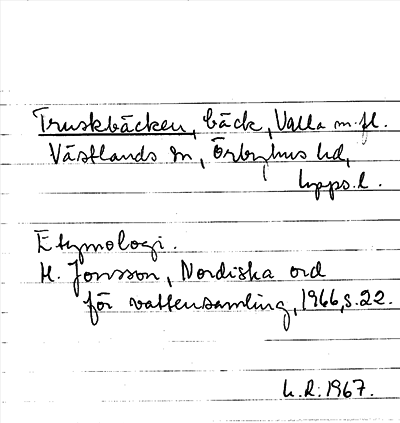 Truskbäcken, bäck, Valla m.fl.
Västlands sn, Örbyhus hd,
Upps. l.
Etymologi.
H. Jonsson, Nordiska ord
för vattensamling, 1966, s. 22.
1967.